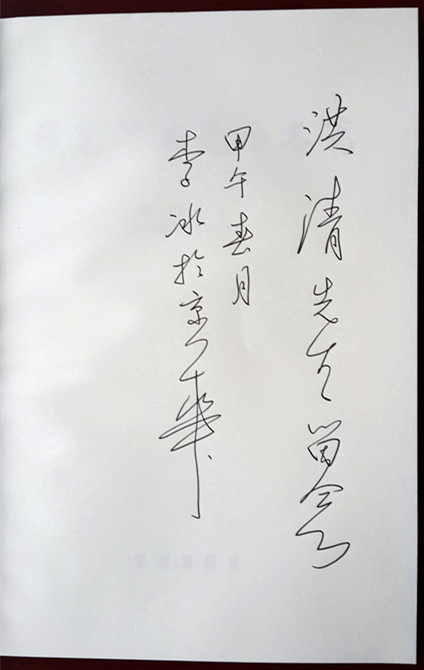 洪清先生留念
甲午春月
李冰於京華